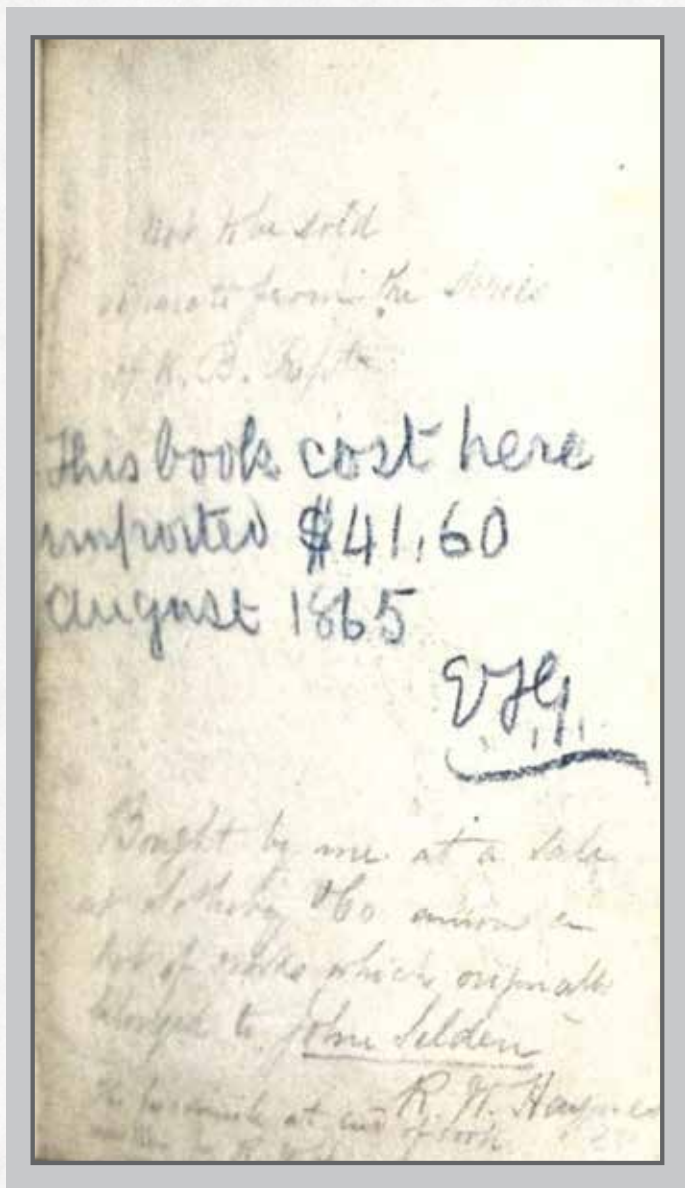 not to be sold
separate from the series
of K. B.
This book cost here
imported $41,60
August 1865
E.J.G.
Bought by me at a sale
at Sotheby & Co among a
lot of books which originally
belonged to John Selden
R. W. Haynes
The facsimile at end of book